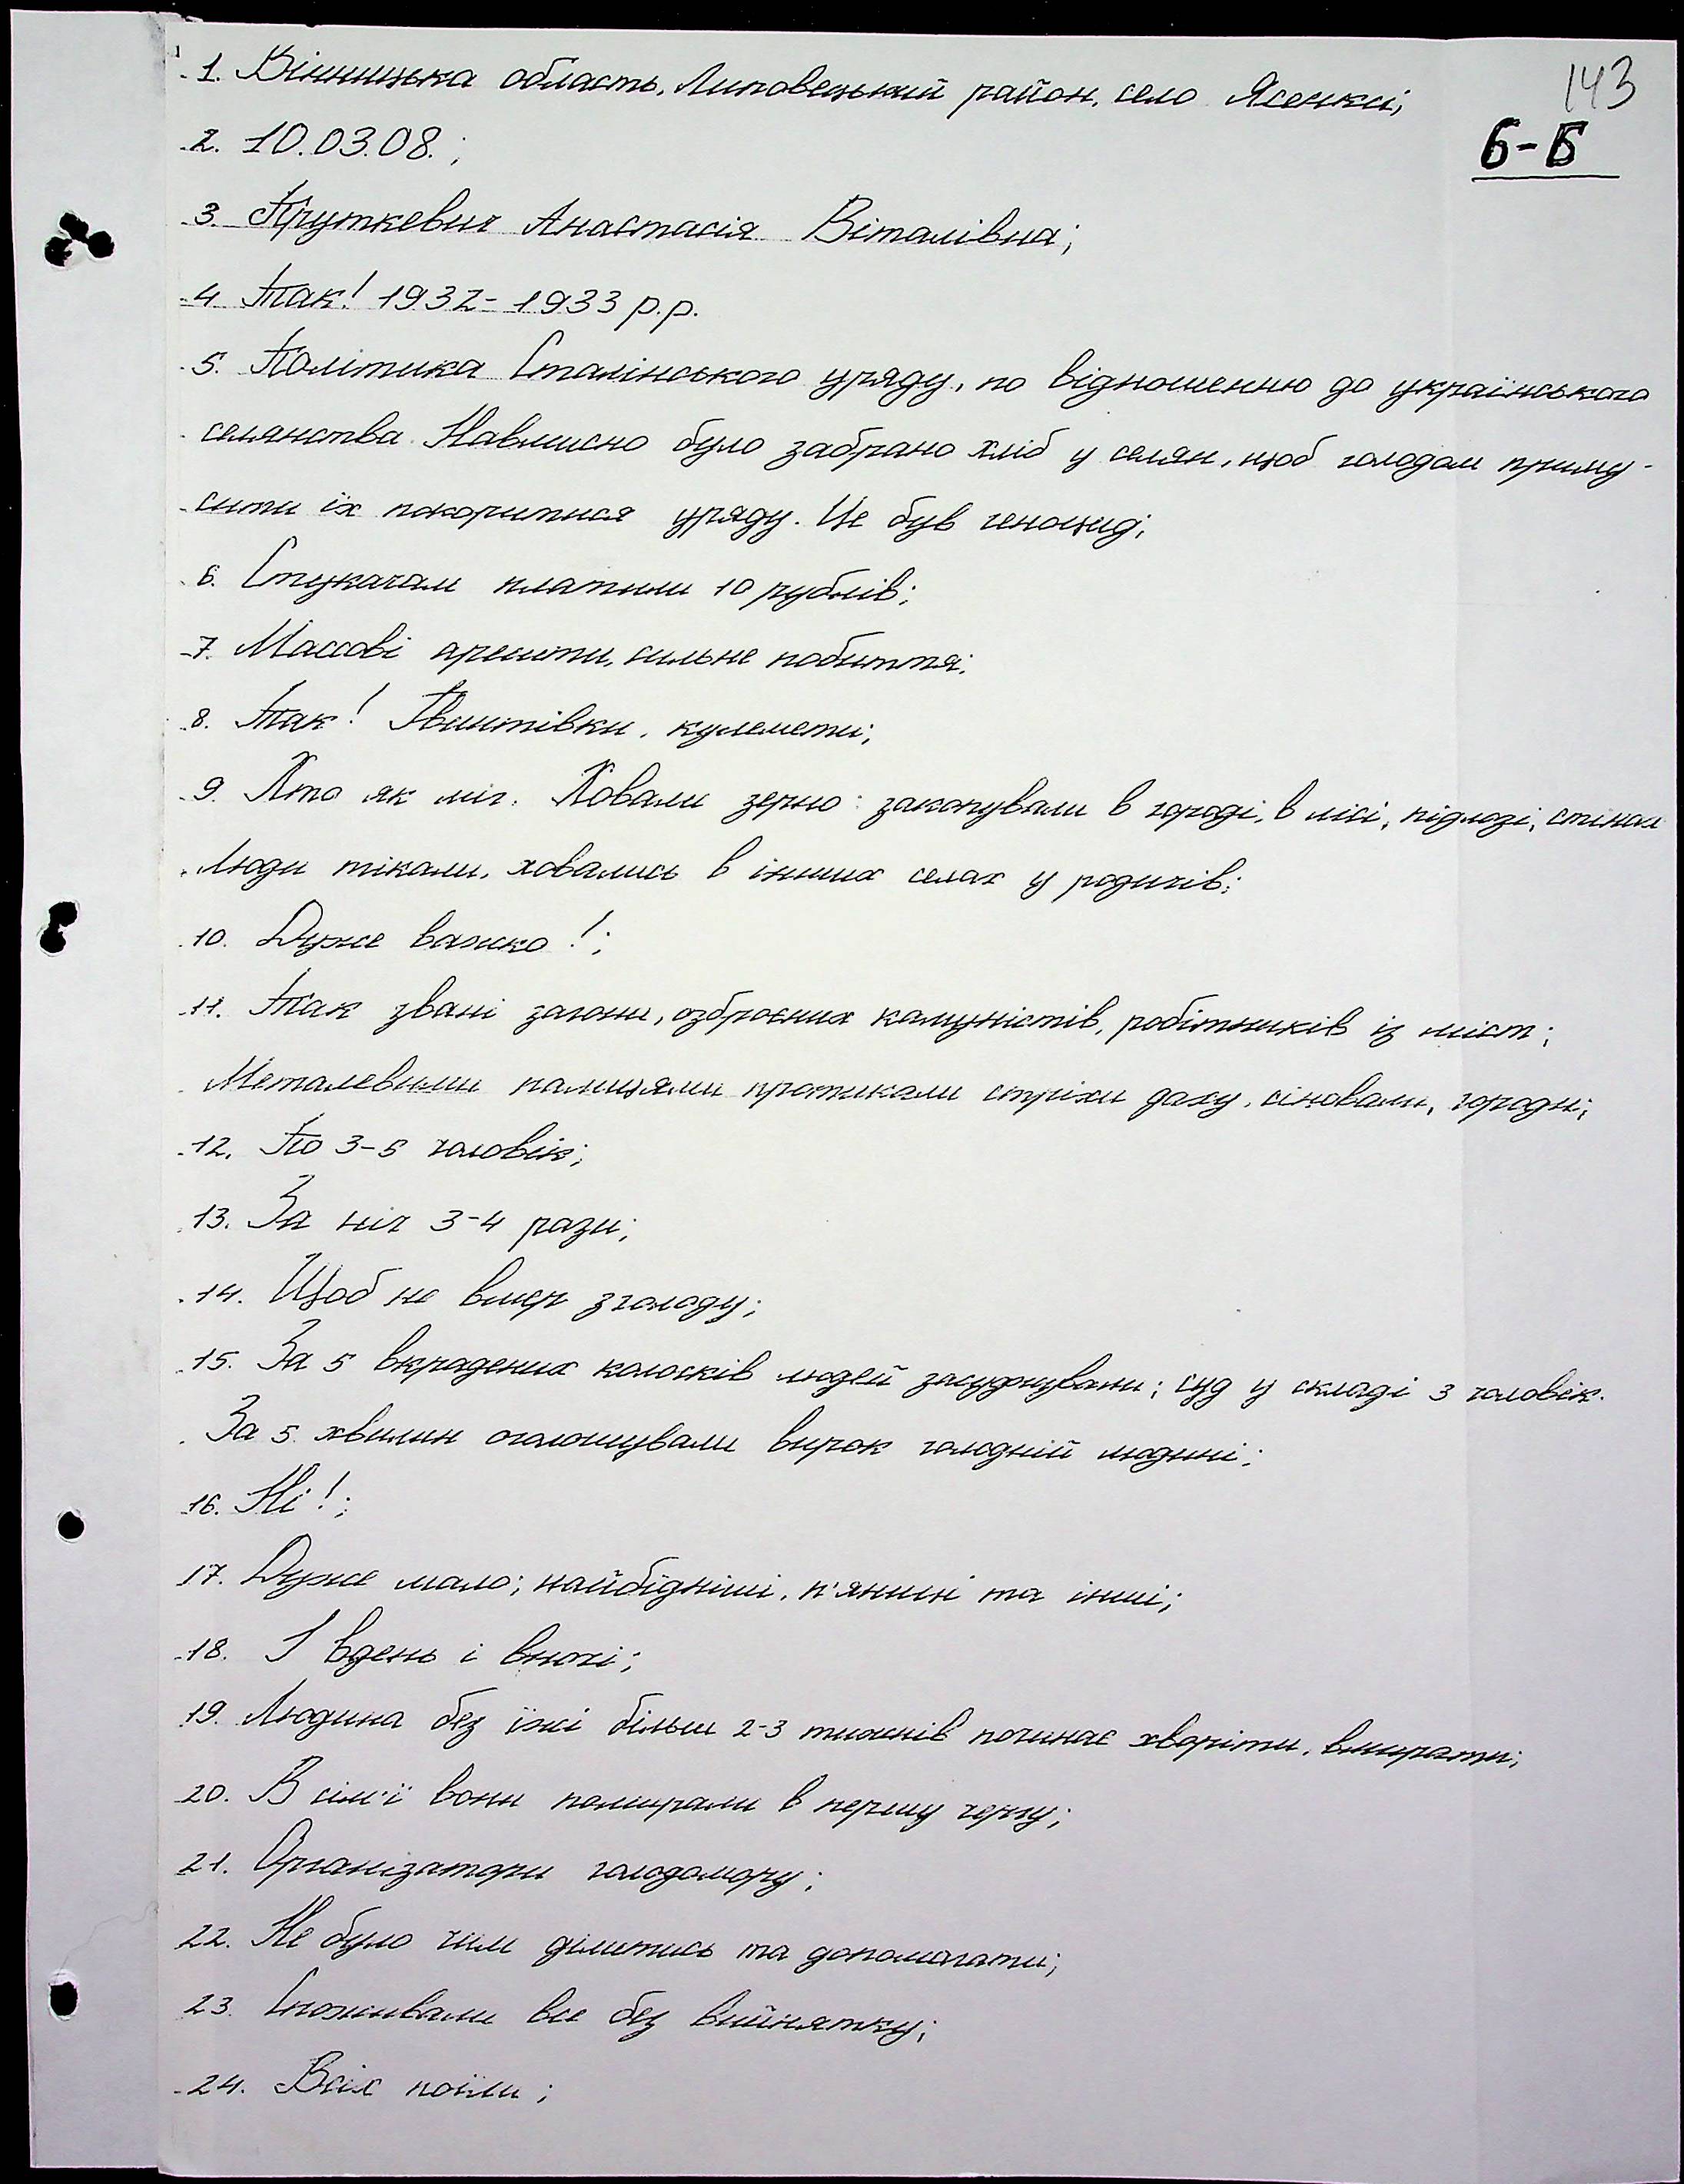 143
6-Б
1. Вінницька область, Липовецький район, село Ясенкі;
2. 10.03.08.;
3. Пруткевич Анастасія Віталівна;
4. Так! 1932-1933 р.р.
5. Політика Сталінського уряду, по відношенню до українського
селянства. Навмисно було забрано хліб у селян, щоб голодом приму-
сити їх покоритися уряду. Це був геноцид;
6. Стукачам платили 10 рублів;
7. Массові арешти, сильне побиття;
8. Так! Гвинтівки, кулемети;
9. Хто як міг. Ховали зерно: закопували в городі, в лісі, підлозі, стінах
Люди тікали, ховались в інших селах у родичів;
10. Дуже важко!;
11. Так звані загони, озброєних комуністів, робітників із міст;
Металевими палицями протикали стріхи даху, сіновали, городи;
12. По 3-5 чоловік;
13. За ніч 3-4 рази;
14. Щоб не вмер з голоду;
15. За 5 вкрадених колосків людей засуджували; суд у складі 3 чоловік.
За 5 хвилин оголошували вирок голодній людині;
16. Ні!;
17. Дуже мало; найбідніші, п'яниці та інші;
18. І вдень і вночі;
19. Людина без їжі більш 2-3 тижнів починає хворіти, вмирати;
20. В сім'ї вони помирали в першу чергу;
21. Організатори голодомору;
22. Не було чим ділитись та допомагати;
23. Споживали все без вийнятку;
24. Всіх поїли;